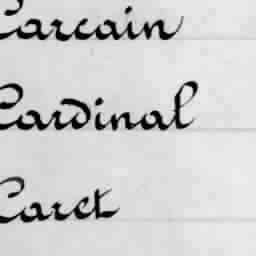 Carcain
Cardinal
Caret